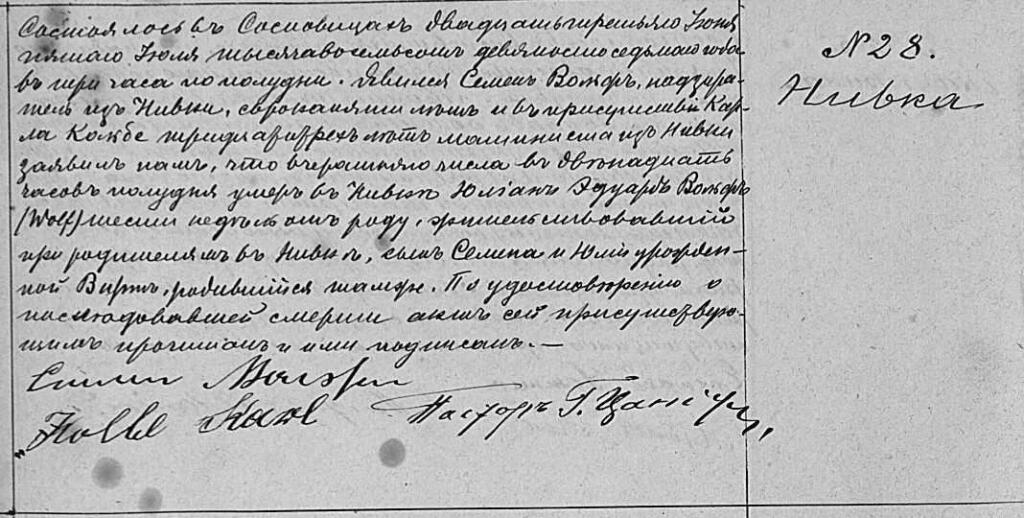 Состоялось въ Сосновицахъ двадцать третьяго Іюня
пятаго Іюля тысяча восемьсотъ девяносто седьмаго года
въ три часа по полудни. Явился Семенъ Вольфъ, надзира-
тель изъ Нивки, сорока пяти лѣтъ и въ присутствіи Кар-
ла Кольбе тридцати трехъ лѣтъ машиниста изъ Нивки
заявилъ намъ, что вчерашняго числа въ двѣнадцать
часовъ полудня умеръ въ Нивкѣ Юліанъ Эдуардъ Вольфъ
(Wolf) шести недѣль отъ роду, жительствовавшій
при родителяхъ въ Нивкѣ, сынъ Семена и Юліи урожден-
ной Виртъ, родившійся тамже. По удостовѣренію о
послѣдовавшей смерти актъ сей присутствую-
щимъ прочитанъ и ими подписанъ. —
Kolbe Karl Пасторъ Г.
№ 28.
Нивка